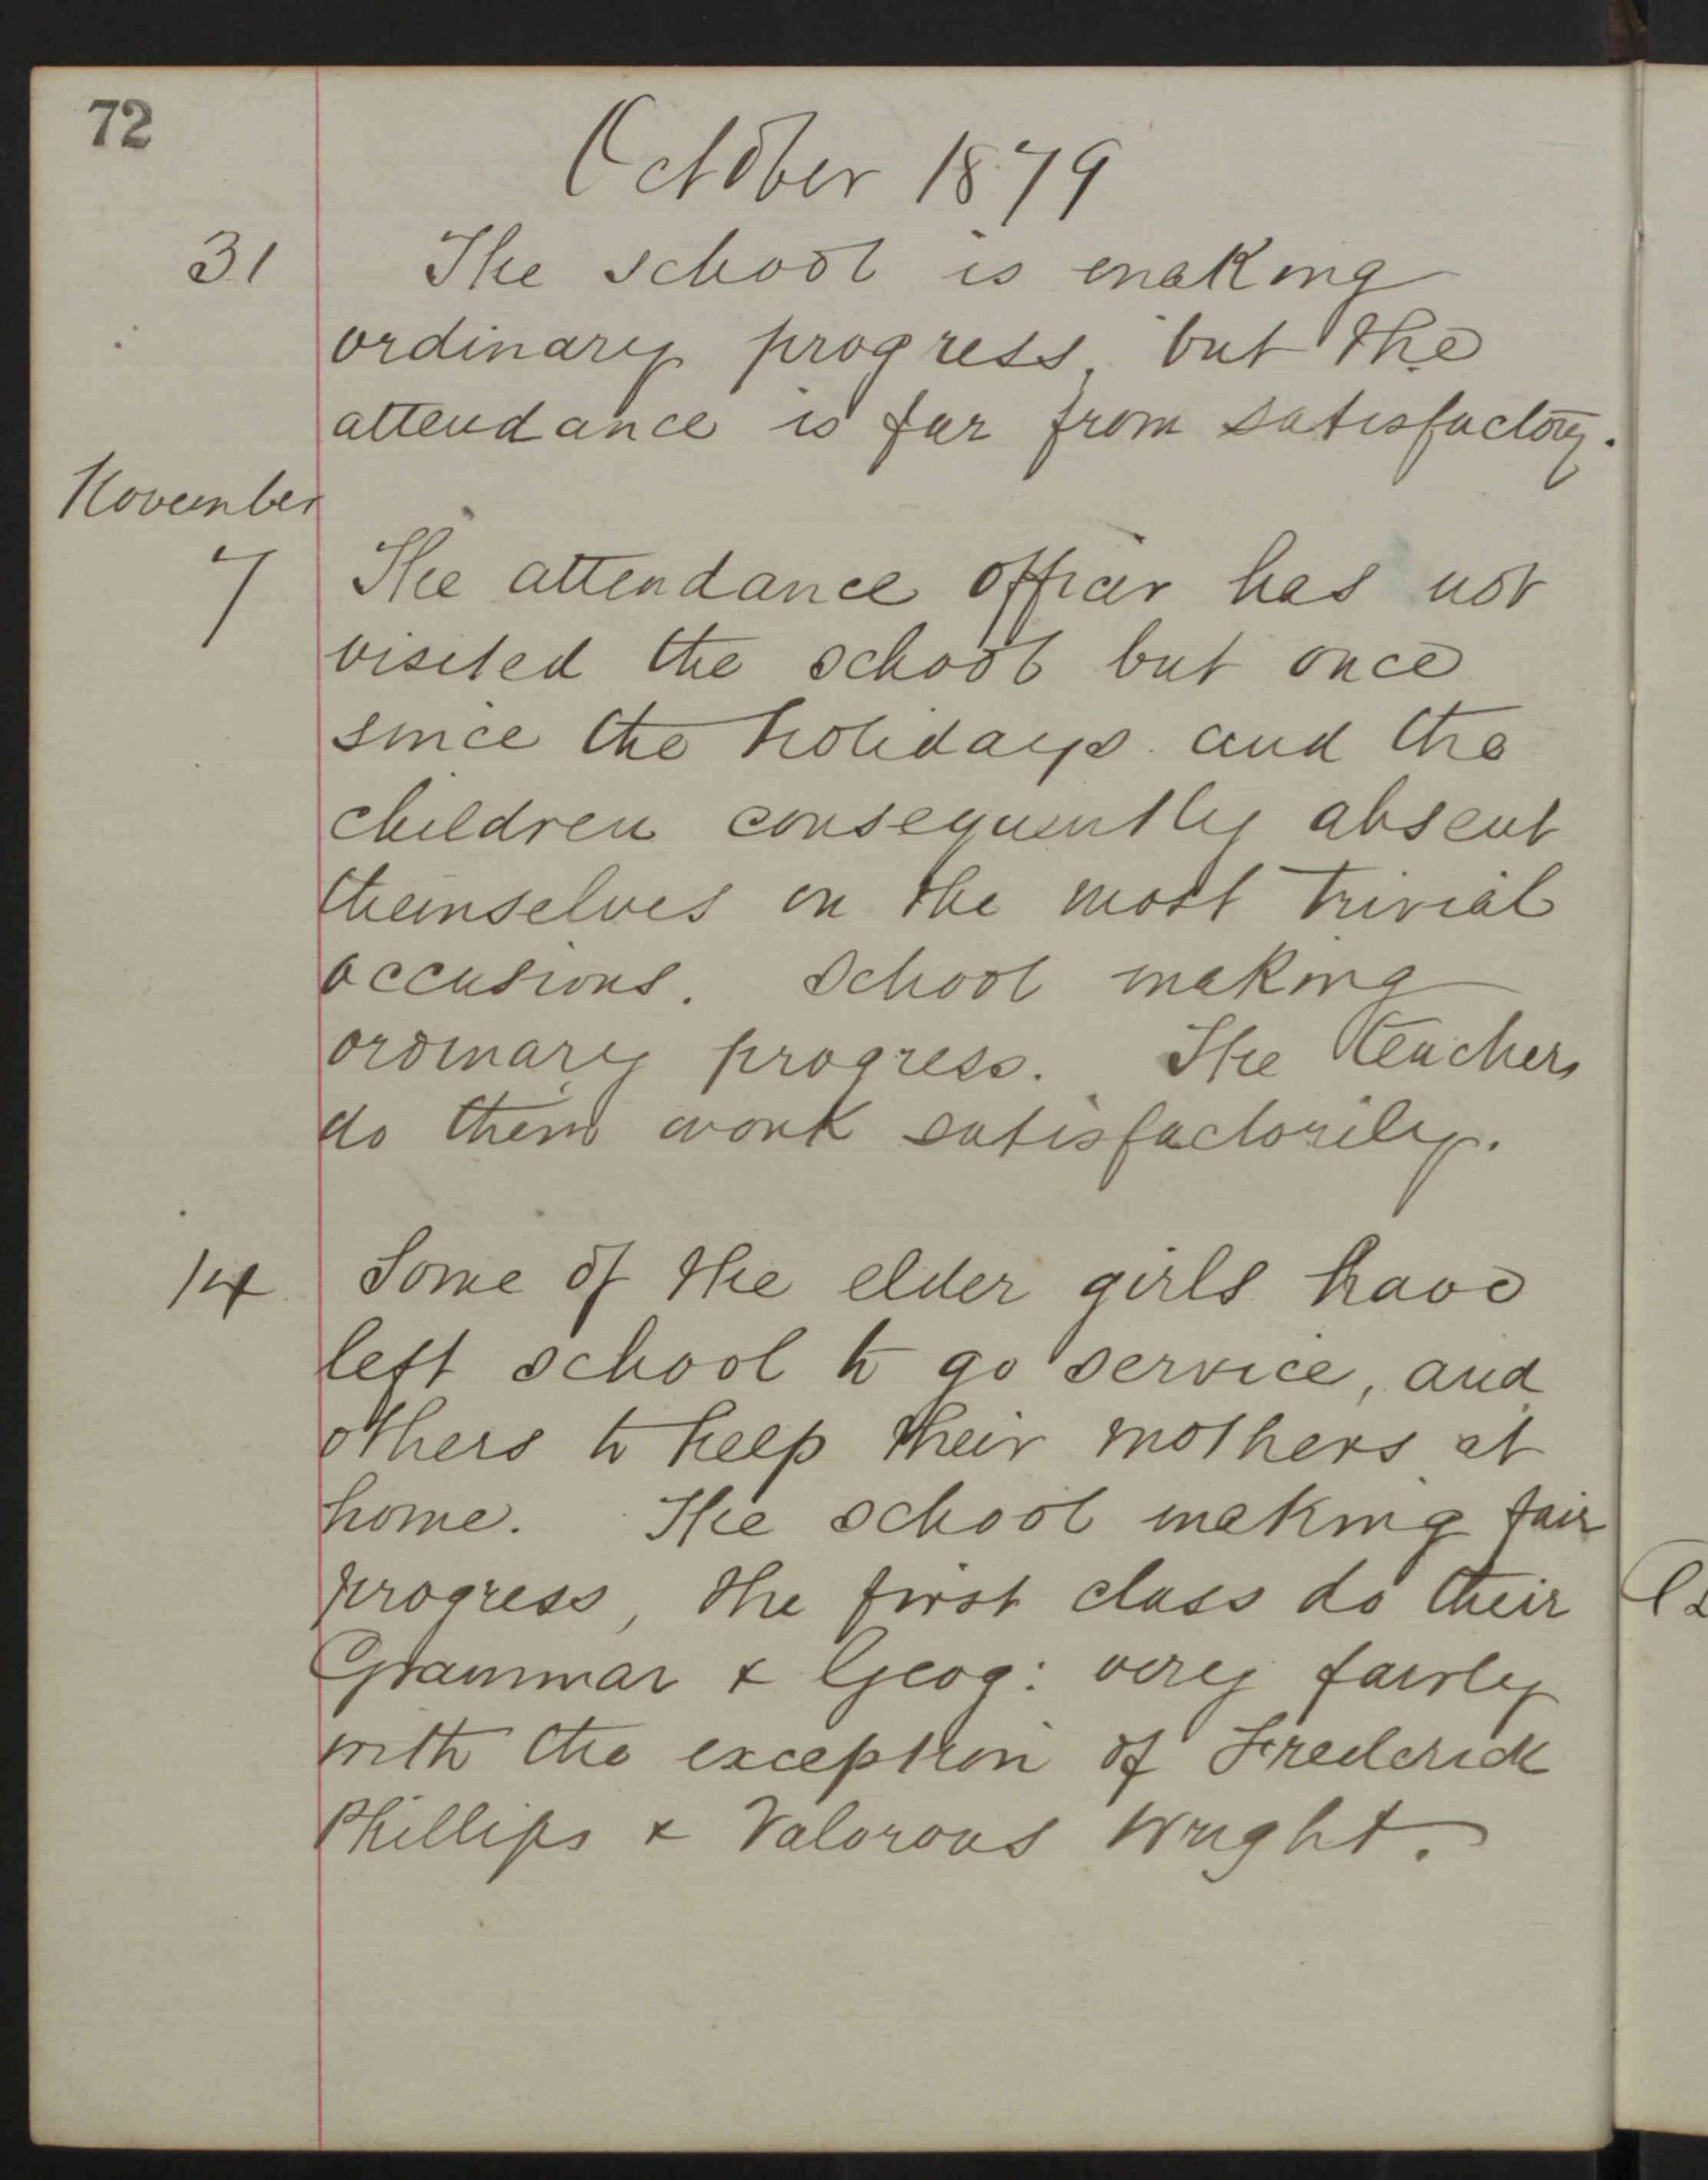 72
October 1879
31 The school is making
ordinary progress, but the
attendance is far from satisfactory.
November
7 The attendance officer has not
visited the school but once
since the holidays and the
children consequently absent
themselves on the most trivial
occasions. School making
ordinary progress. The teachers
do their work satisfactorily.
14 Some of the elder girls have
left school to go service, and
others to help their mothers at
home. The school making fair
progress, the first class do their
Grammar & Geog: very fairly
with the exception of Frederick
Phillips & Valorous Wright.